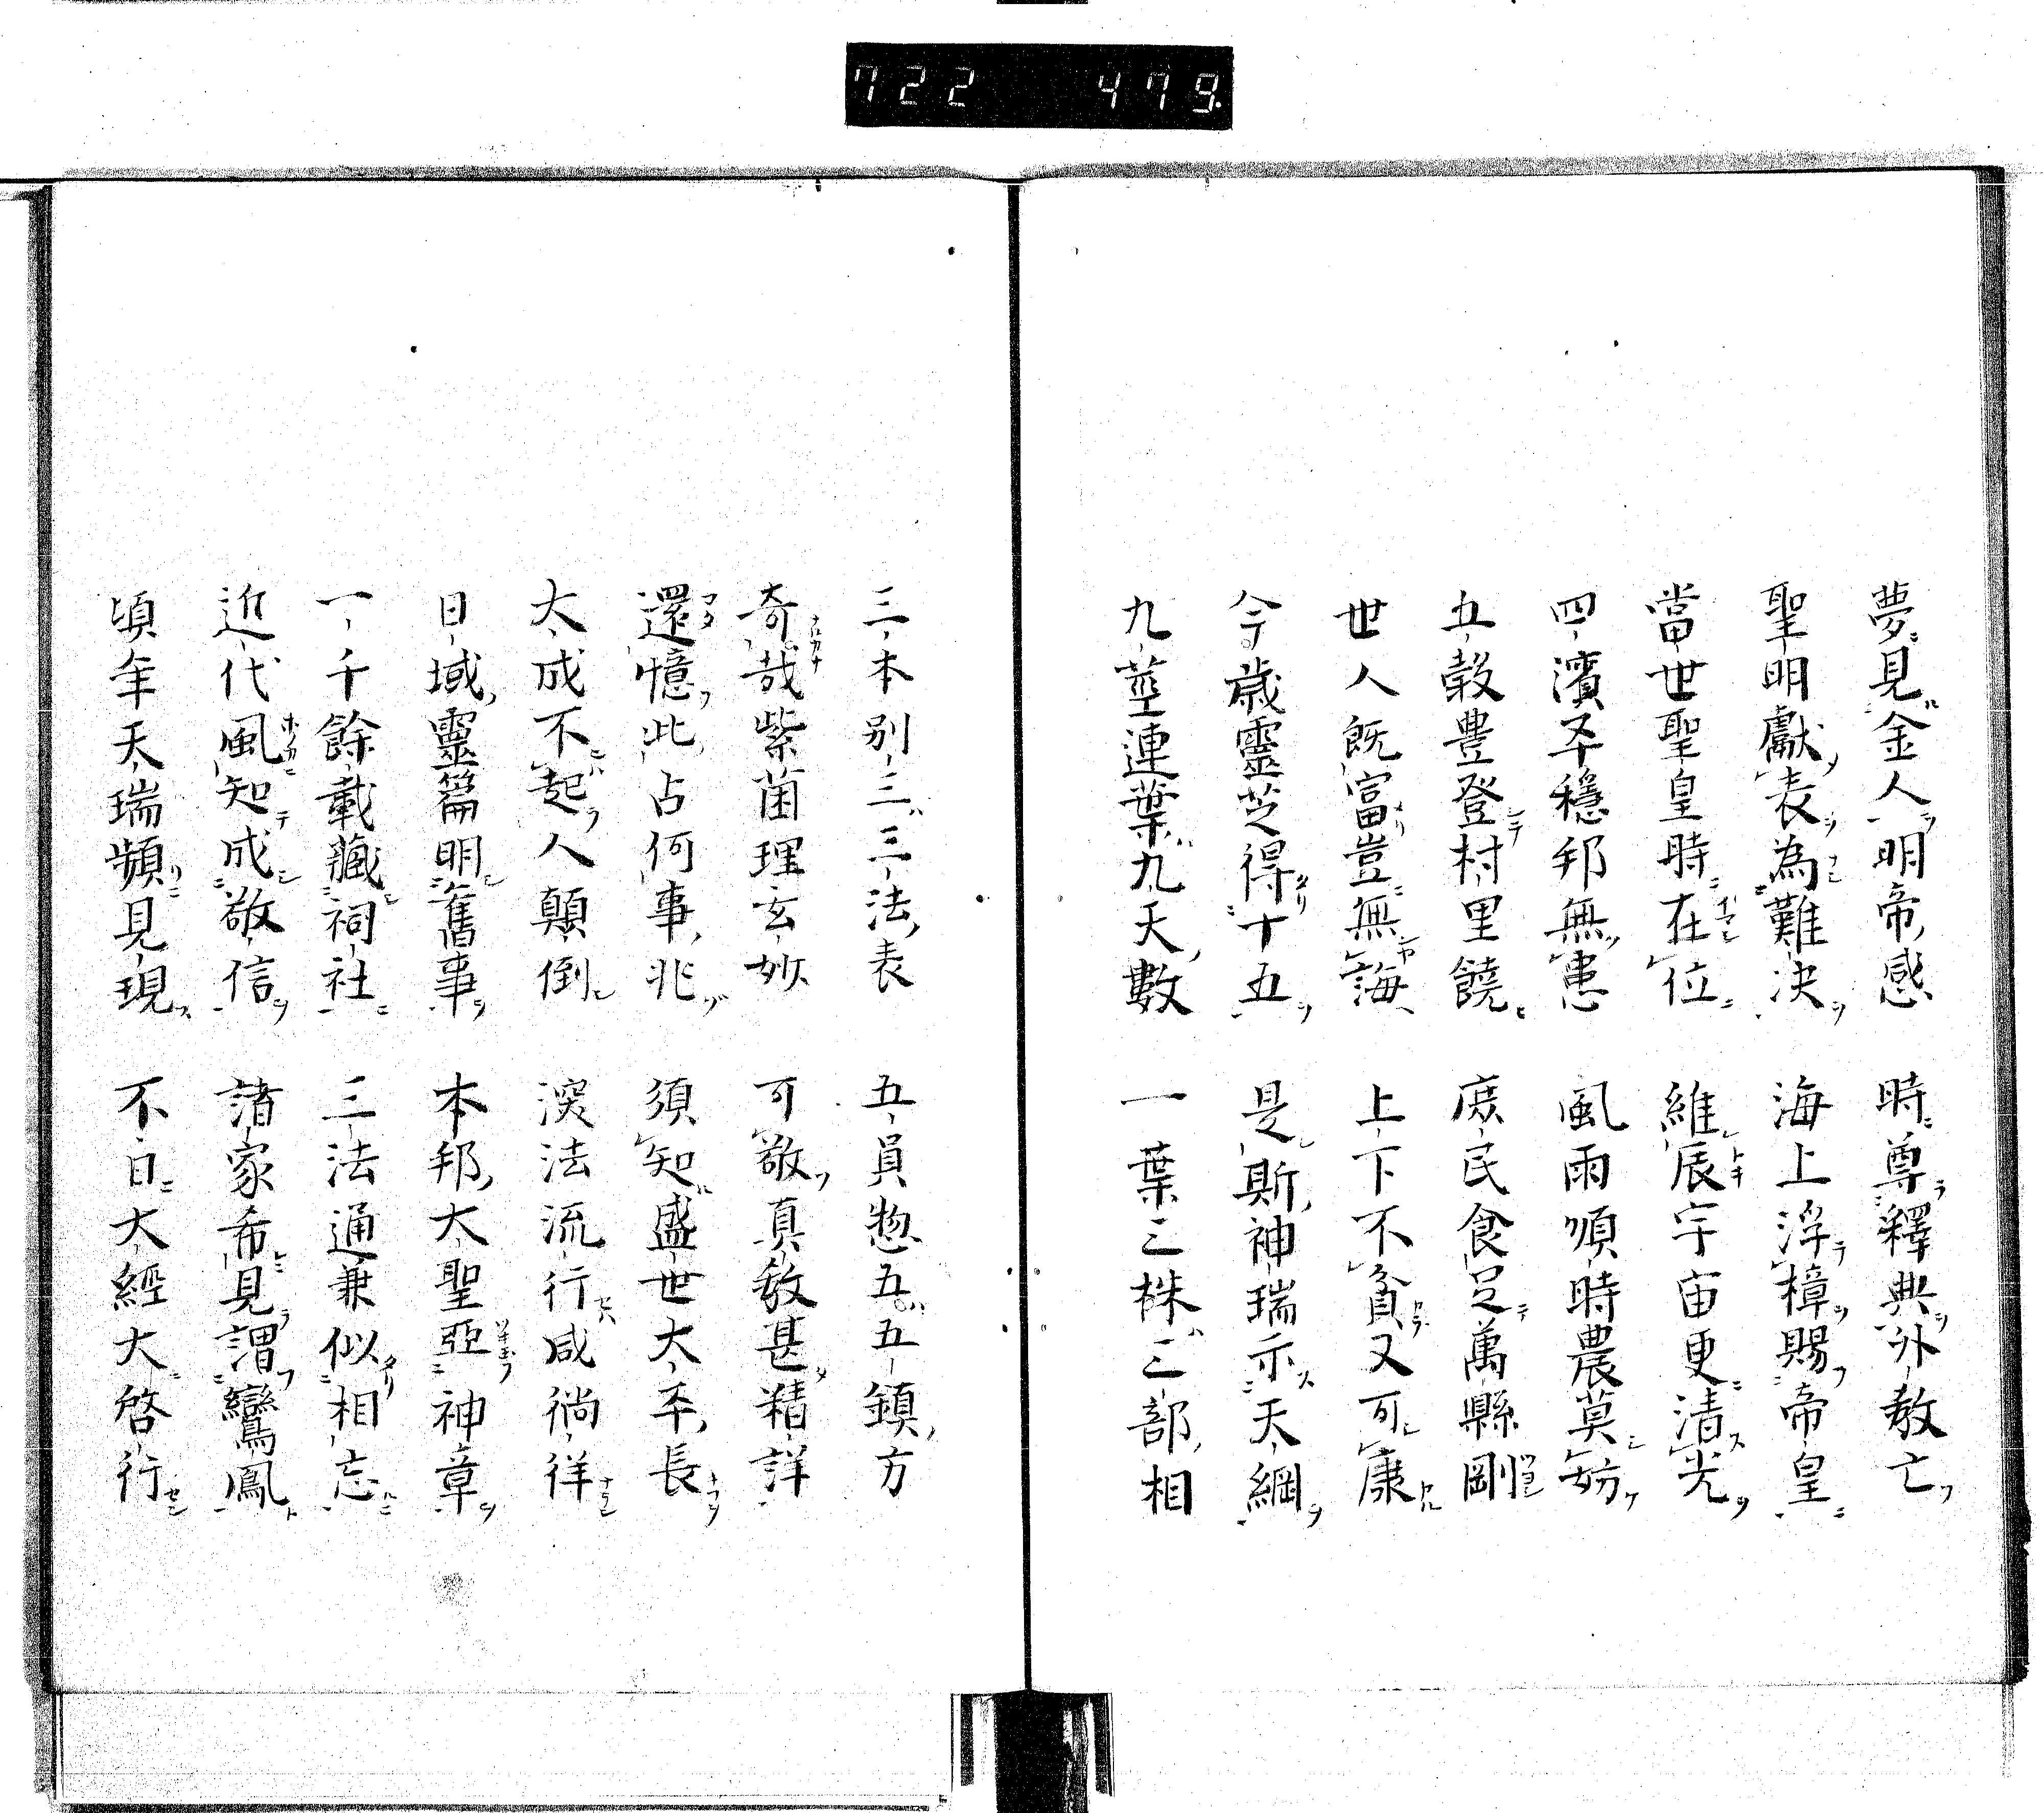 722 479
夢見金人明帝感 時尊釋典外教亡
聖明獻表為難決 海上浮樟賜帝皇
當世聖皇時在位 維辰宇宙更清光
四濱平穩邦無恙 風雨順時農莫妨
五穀豊登村里饒 庶民食足萬縣剛
世人既富豈無誨 上下不貧又可康
今歳靈芝得十五 是斯神瑞示天綱
九莖連葉九天數 一葉三株三部相
三本別三三法表 五員惣五五鎮方
奇哉紫菌理玄妙 可敬真教甚精詳
還憶此占何事兆 須知盛世大平長
大成不起人顛倒 深法流行咸徜徉
日域靈篇明舊事 本邦大聖亞神章
一千餘載藏祠社 三法通兼似相忘
近代風知成敬信 諸家希見謂鸞鳳
頃年天瑞頻見現 不日大經大啓行